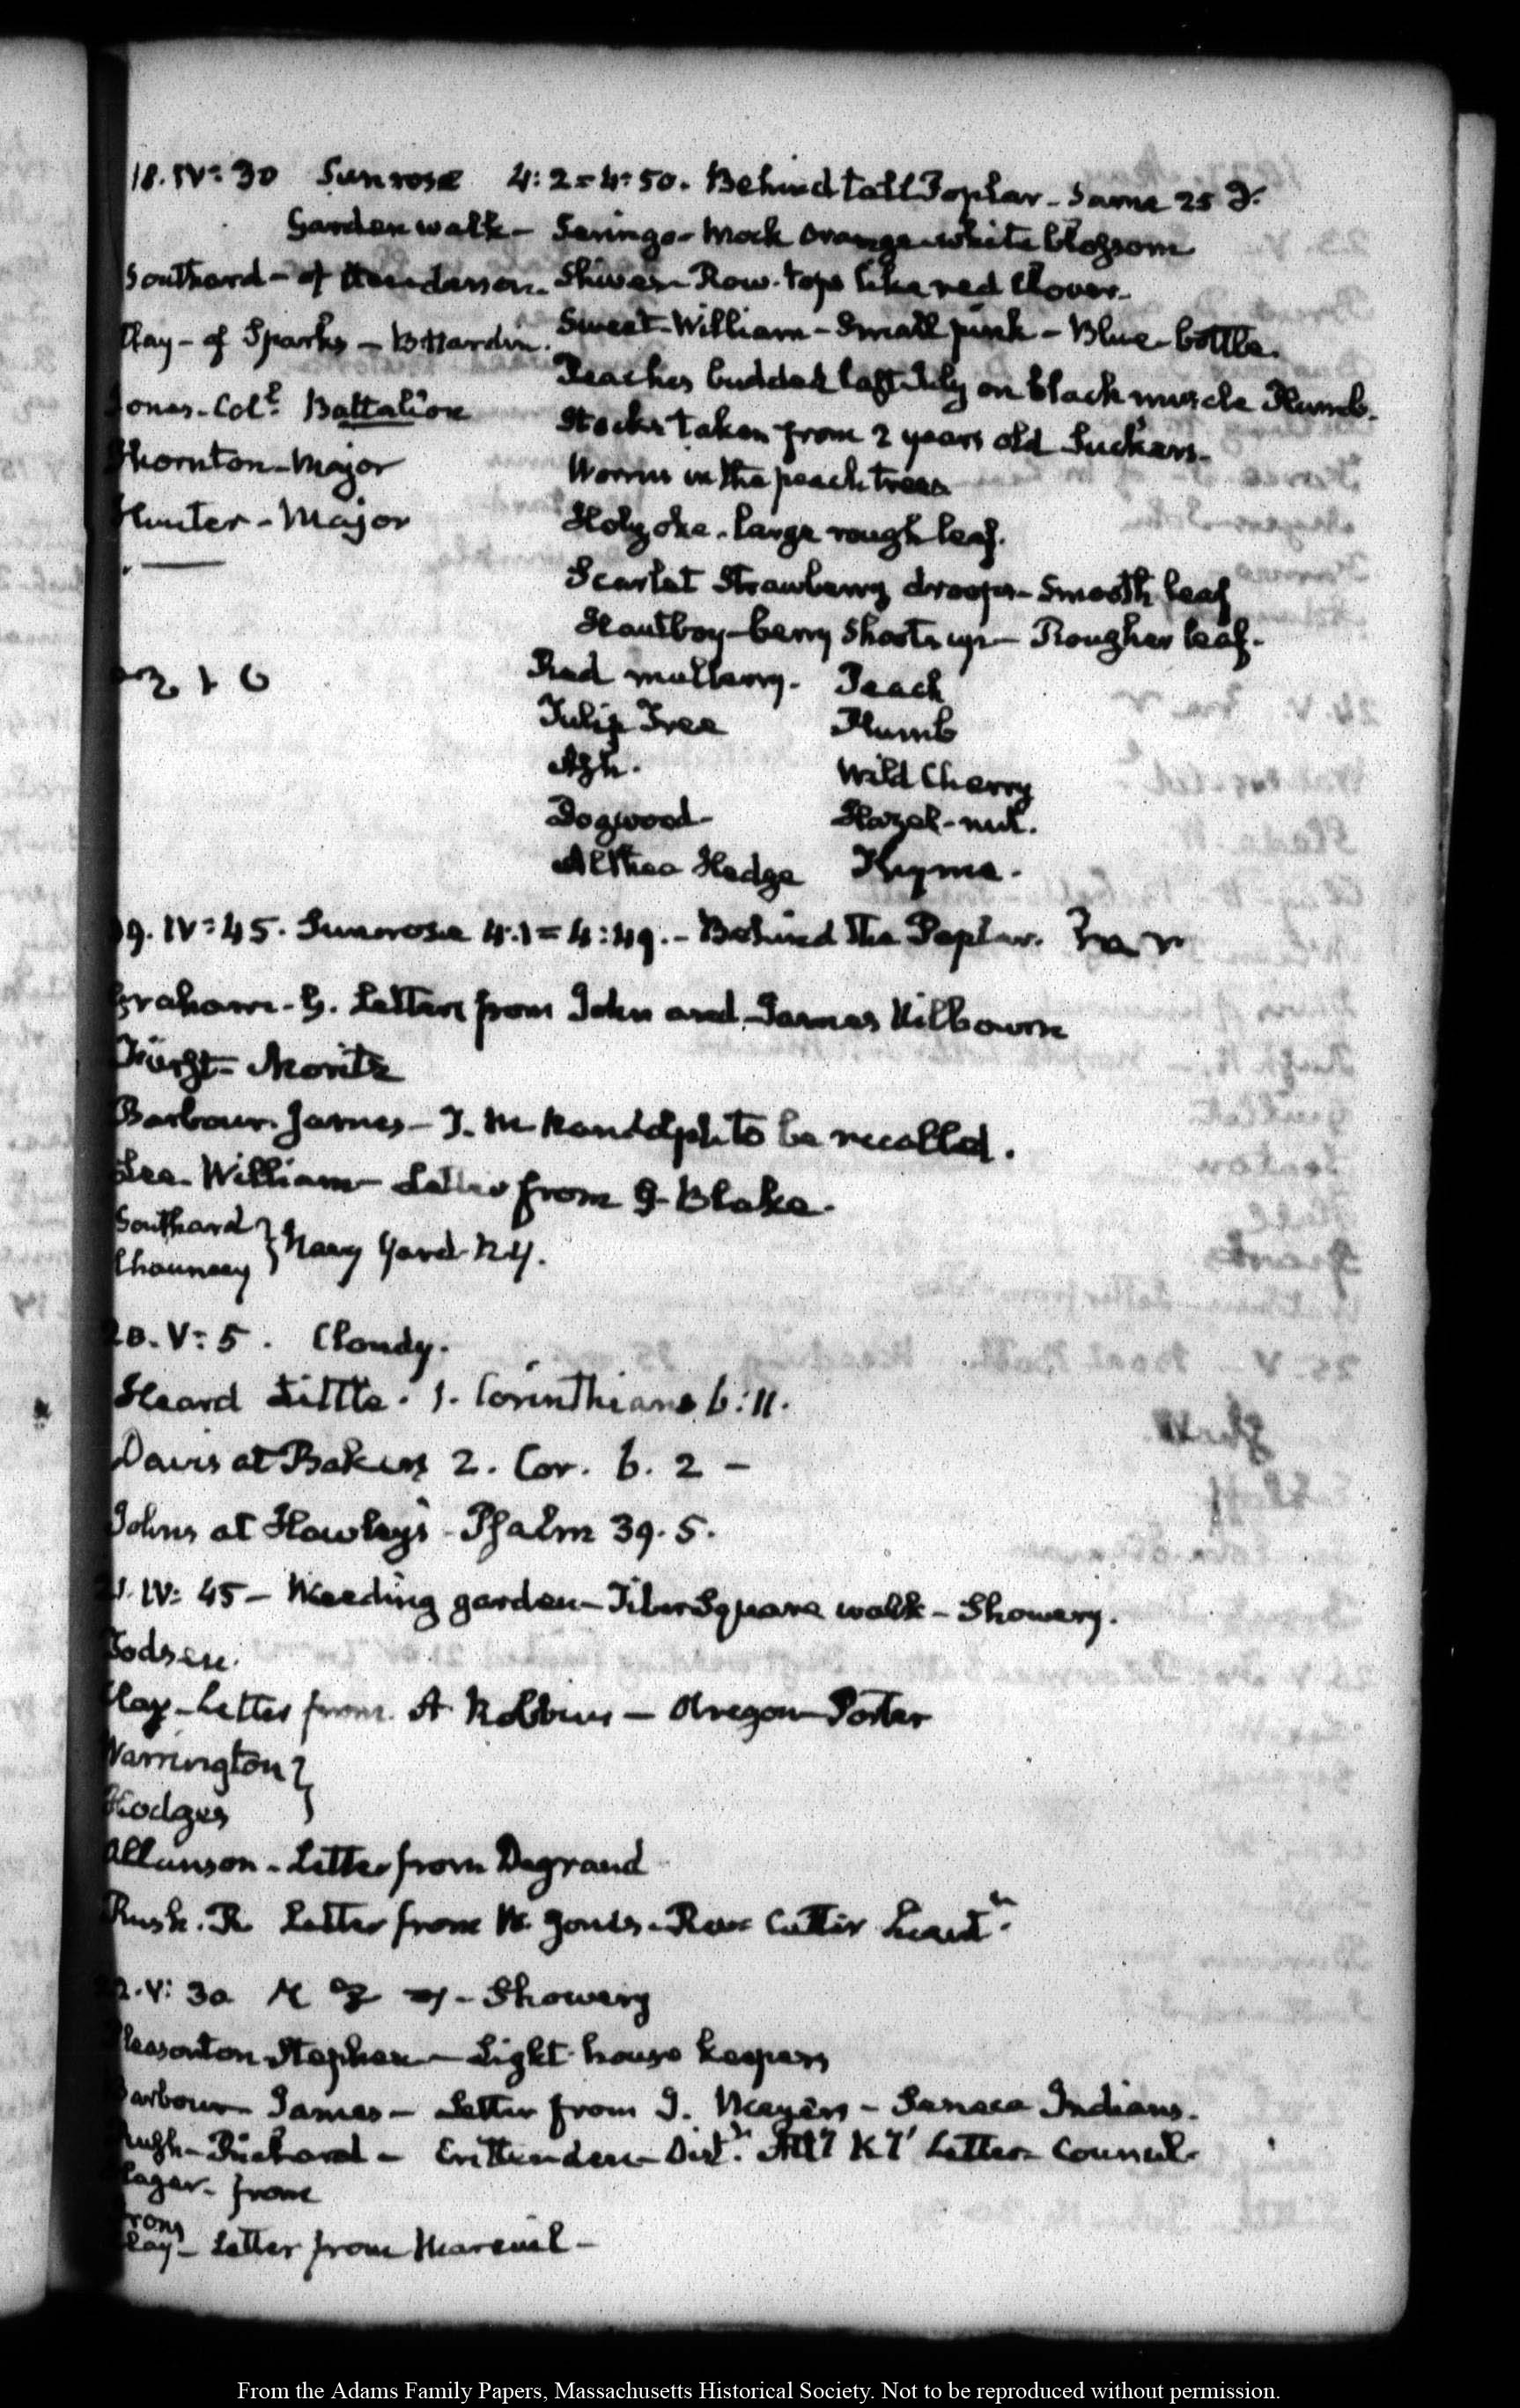 18. IV: 30 Sunrose 4:2 = 4:50. Behind tall Poplar - Same 25 I.
Garden walk - Seringo - Mock orange white blossom
Southard - of Henderson. Shives - Row. tops like red Clover.
Clay - of Sparks - B. Hardin. Sweet-William - Small pink - Blue-bottle.
Peaches budded last July on black muscle Plumb.
Jones. Col.l Battalion Stocks taken from 2 years old Suckers.
Thornton - Major Worms in the peach trees
Hunter - Major Holy oke - large rough leaf.
Scarlet Strawberry droops - Smooth leaf
Hautboy-berry Shoots up - Rougher leaf.
Red mulberry. Peach
Tulip Tree Plumb
Ash. Wild Cherry
Dogwood Hazel-nut.
Althea Hedge Thyme.
19. IV: 45. Sunrose 4.1 = 4:49. - Behind the Poplar.
Graham. G. Letters from John and James Kilbourn
Fürst - Moritz
Barbour. James - T. M. Randolph to be recalled.
Lee. William - Letter from G Blake.
Southard } Navy Yard N.Y.
Chauncey
20. V: 5. Cloudy.
Heard Little. 1. Corinthians 6:11.
Davis at Bakers 2. Cor. 6. 2 -
Johns at Hawleys - Psalm 39. 5.
21. IV: 45 - Weeding garden - Tiber Square walk - Showery.
Todsen.
Clay - Letter from A Robbins - Oregon Porter
Warrington }
Hodges
Allanson - Letter from Degrand
Rush. R. Letter from W. Jones - Rev Cutter Lieut.t
22. V: 30 - Showery
Pleasonton Stephen - Light-house keepers
Barbour James - Letter from J. Meyers - Seneca Indians.
Rush - Richard - Crittenden - Dist.t Att.y K.y Letter - Council
from
Clay - Letter from Mareuil -
From the Adams Family Papers, Massachusetts Historical Society. Not to be reproduced without permission.